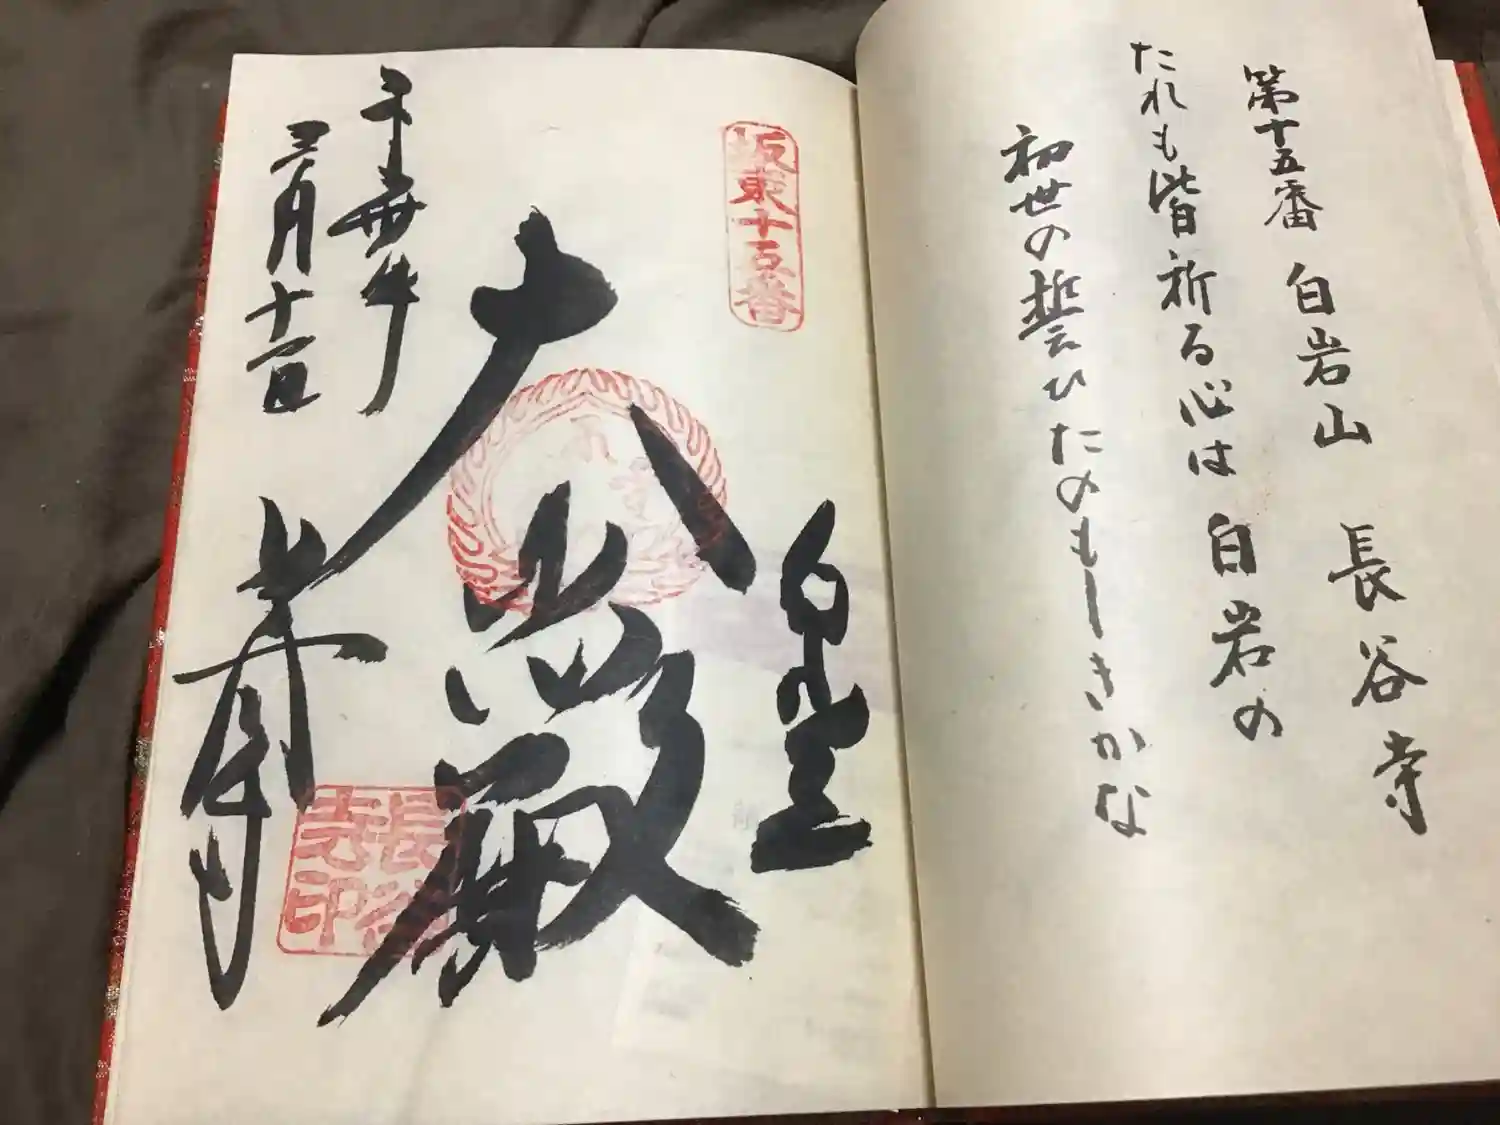 第十五番 白岩山 長谷寺
たれも皆祈る心は 白岩の
初世の誓ひたのもしきかな
坂東十五番
大悲殿
三月十一日
長谷
之印